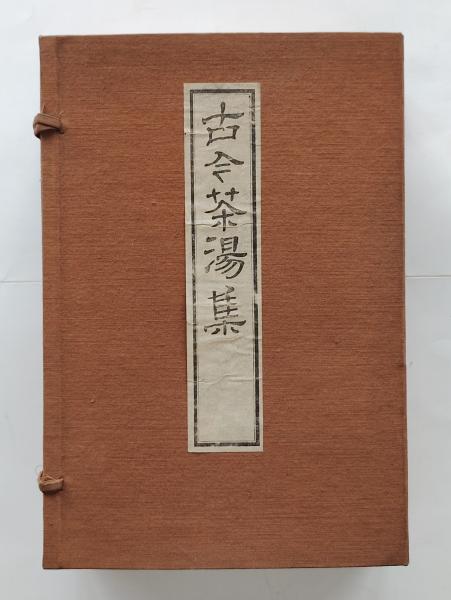 古今茶湯集